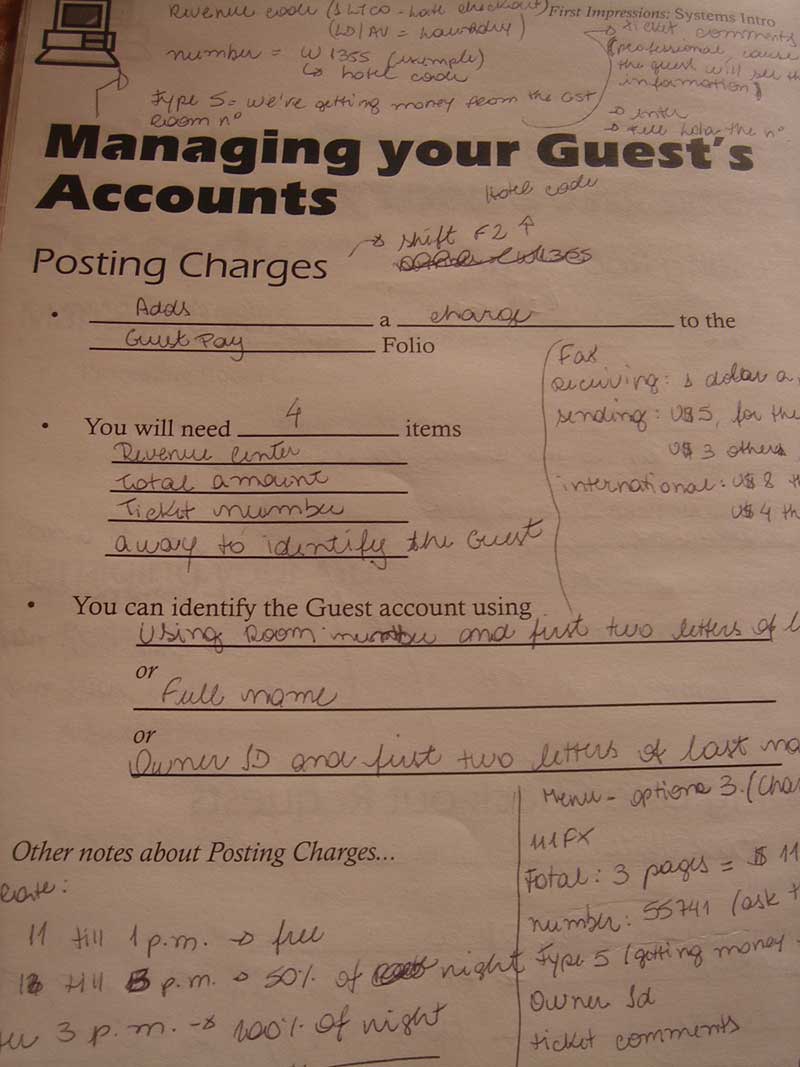 Revenue code (SLTCO - late checkout)
(LD/AV = Laundry)
First Impressions: Systems Intro
number = W1355 (example)
hotel code
Type 5 = we're getting money from the GST
Room nº
ticket comments
(professional, cause
the guest will see th
information)
enter
the nº
Managing your Guest's
Accounts
Hotel code
shift F2
Posting Charges
• Adds a charge to the
Guest Pay Folio
Fax
receiving: 1 dolar a
sending: U$5, for the
U$ 3 others
international: U$ 8 th
U$ 4 th
• You will need 4 items
Revenue center
total amount
Ticket number
a way to identify the Guest
• You can identify the Guest account using
Using Room number and first two letters of l
or
Full name
or
Owner ID and first two letters of last na
Menu - optione 3. (Cha
Other notes about Posting Charges...
Total: 3 pages = $ 11
number: 55741 (ask t
11 till 1 p.m. → free
Type 5 (getting money
till 3 p.m. → 50% of night
Owner Id
3 p.m. → 100% of night
ticket comments